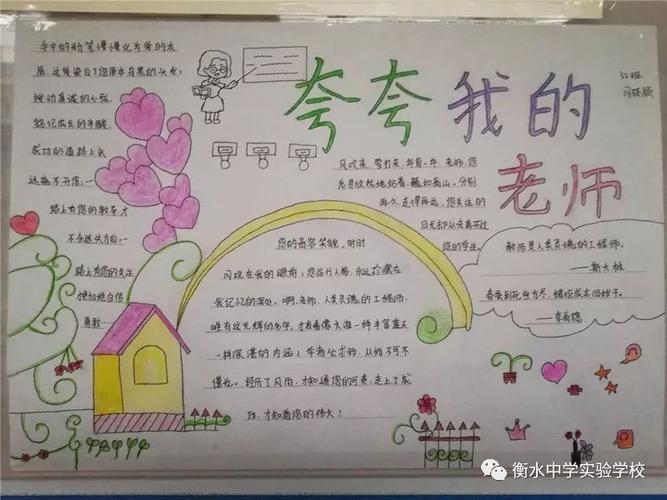 夸夸我的
老师
手中的粉笔慢慢化为爱的衣
唇,这笔染白了您原本乌黑的头发,
拨动真诚的心弦
铭记成长的辛酸
成功的道路上永
远离不开您,一
路上有您的教导才
不会迷失方向,一
路上有您的关注
更加地自信
勇敢
风吹来,雪打来,年复一年,老师,您
总是欣然地站着,巍如高山。分别
再久,走得再远,您关注的
目光却从未离开过
您的学生。
您的音容笑貌,时时
闪现在我的眼前;您品行人格,永远珍藏在
我记忆的深处,啊,老师,人类灵魂的工程师,
唯有这光辉的名字,才有着像大海一样丰富蓝天
一样深湛的内涵;学者必求师,从师不可不
谨也。经历了风雨,才知道您的可贵,走上了成
功,才知道您的伟大!
教师是人类灵魂的工程师。
——斯大林
春蚕到死丝方尽,蜡炬成灰泪始干。
——李商隐
衡水中学实验学校